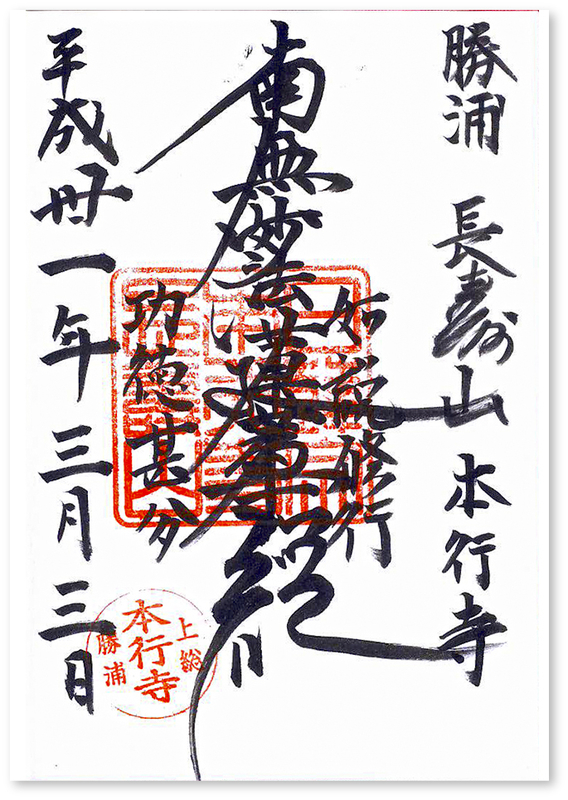 勝浦 長寿山 本行寺
如説修行
南無妙法蓮華経
功徳甚多
平成丗一年三月三日
上総
本行寺
勝浦